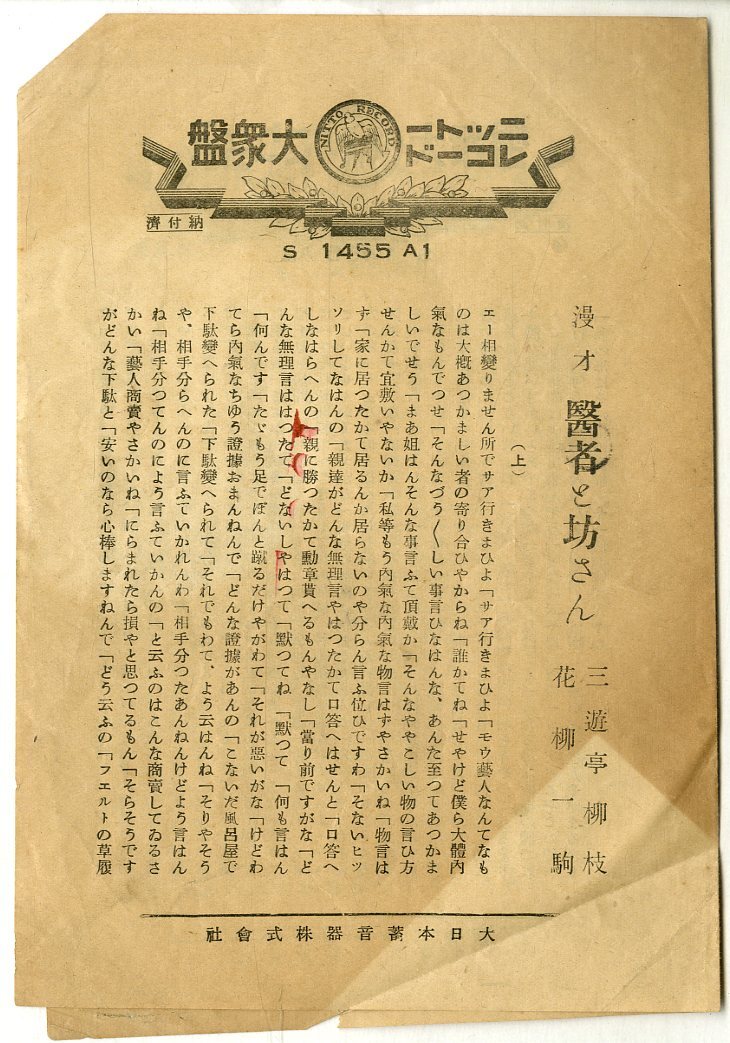 ニットーレコード 大衆盤
NITTO RECORD
納付濟
S 1455 A1
漫才 醫者と坊さん
三遊亭柳枝
花柳一駒
(上)
エー相變りません所でサア行きまひよ「サア行きまひよ「モウ藝人なんてなも
のは大槪あつかましい者の寄り合ひやからね「誰かてね「せやけど僕ら大體內
氣なもんでつせ「そんなづう〱しい事言ひなはんな、あんた至つてあつかま
しいでせう「まあ姐はんそんな事言ふて頂戴か「そんなややこしい物の言ひ方
せんかて宜敷いやないか「私等もう內氣な內氣な物言はすやさかいね「物言は
ず「家に居つたかて居るんか居らないのや分らん言ふ位ひですわ「そないヒッ
ソリしてなはんの「親達がどんな無理言やはつたかて口答へはせんと「口答へ
しなはらへんの「親に勝つたかて勳章貰へるもんやなし「當り前ですがな「ど
んな無理言ははつたて「どないしやはつて「默つてね 「默つて 「何も言はん
「何んです「たゞもう足でぽんと蹴るだけやがわて「それが惡いがな「けどわ
てら內氣なちゆう證據おまんねんで「どんな證據があんの「こないだ風呂屋で
下駄變へられた「下駄變へられて「それでもわて、よう云はんね「そりやそう
や、相手分らへんのに言ふていかれんわ「相手分つたあんねんけどよう言はん
ね「相手分つてんのによう言ふていかんの「と云ふのはこんな商賣してゐるさ
かい「藝人商賣やさかいね「にらまれたら損やと思つてるもん「そらそうです
がどんな下駄と「安いのなら心棒しますねんで「どう云ふの「フエルトの草履
大日本蓄音器株式會社